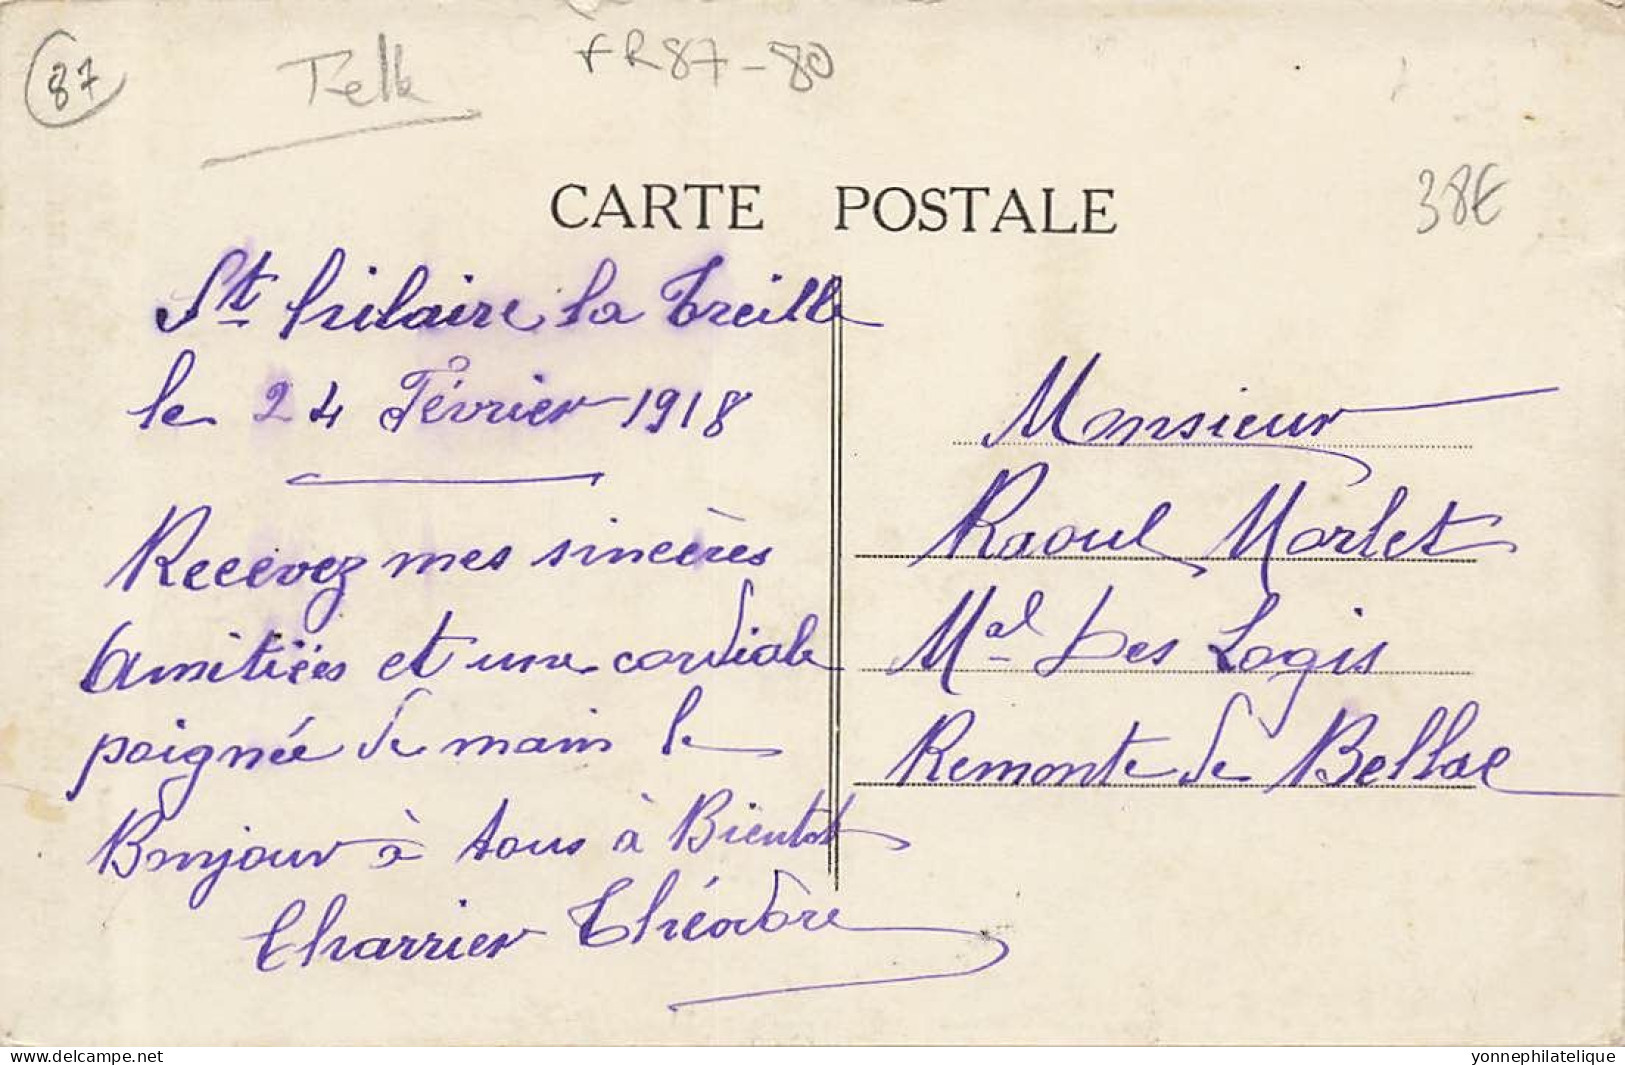 87
FR87-80
38€
CARTE POSTALE
St hilaire la Treille
le 24 Février 1918
Recevez mes sincères
Amitiées et une cordiale
poignée de main le
Bonjour à tous à Bientot
Charrier Théodore
Monsieur
Raoul Morlet
Mal Des Logis
Remonte de Bellac
www.delcampe.net
yonnephilatelique